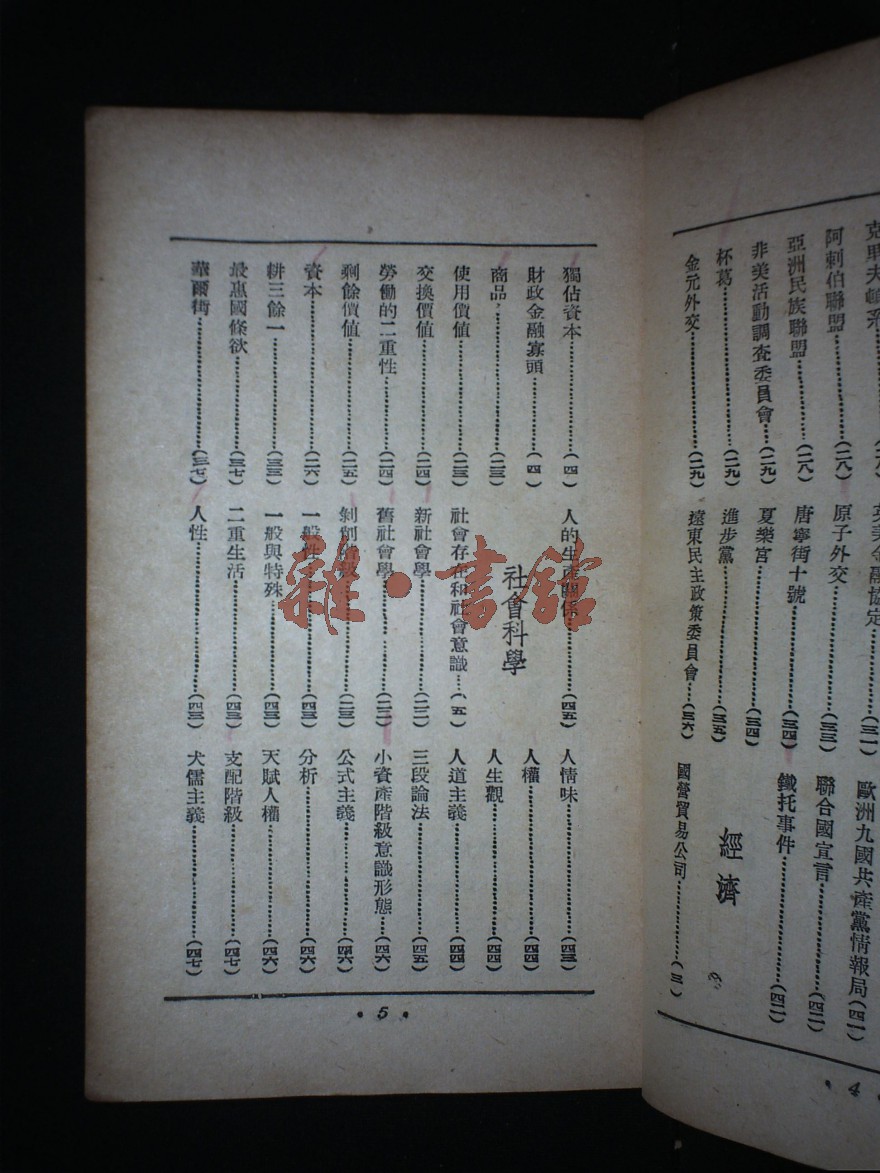 阿剌伯聯盟……(二八)
亞洲民族聯盟……(二八)
非美活動調查委員會……(二九)
杯葛……(二九)
金元外交……(二九)
英美金融協定……(三一)
原子外交……(三三)
唐寧街十號……(三四)
夏樂宮……(三四)
進步黨……(三五)
遠東民主政策委員會……(三六)
歐洲九國共產黨情報局(四一)
聯合國宣言……(四二)
鐵托事件……(四二)
經濟
國營貿易公司……(三)
• 4 •
獨佔資本……(四)
財政金融寡頭……(四)
商品……(二三)
使用價值……(二三)
交換價值……(二四)
勞働的二重性……(二四)
剩餘價值……(二五)
資本……(二六)
耕三餘一……(三三)
最惠國條欵……(三七)
華爾街……(三七)
人的生產關係……(四五)
社會科學
社會存在和社會意識……
新社會學……(二二)
舊社會學……(二二)
剝削……(二三)
一般性……(四三)
一般與特殊……(四三)
二重生活……(四三)
人性……(四三)
人情味……(四三)
人權……(四四)
人生觀……(四四)
人道主義……(四四)
三段論法……(四五)
小資產階級意識形態……(四六)
公式主義……(四六)
分析……(四六)
天賦人權……(四六)
支配階級……(四七)
犬儒主義……(四七)
• 5 •
雜•書館